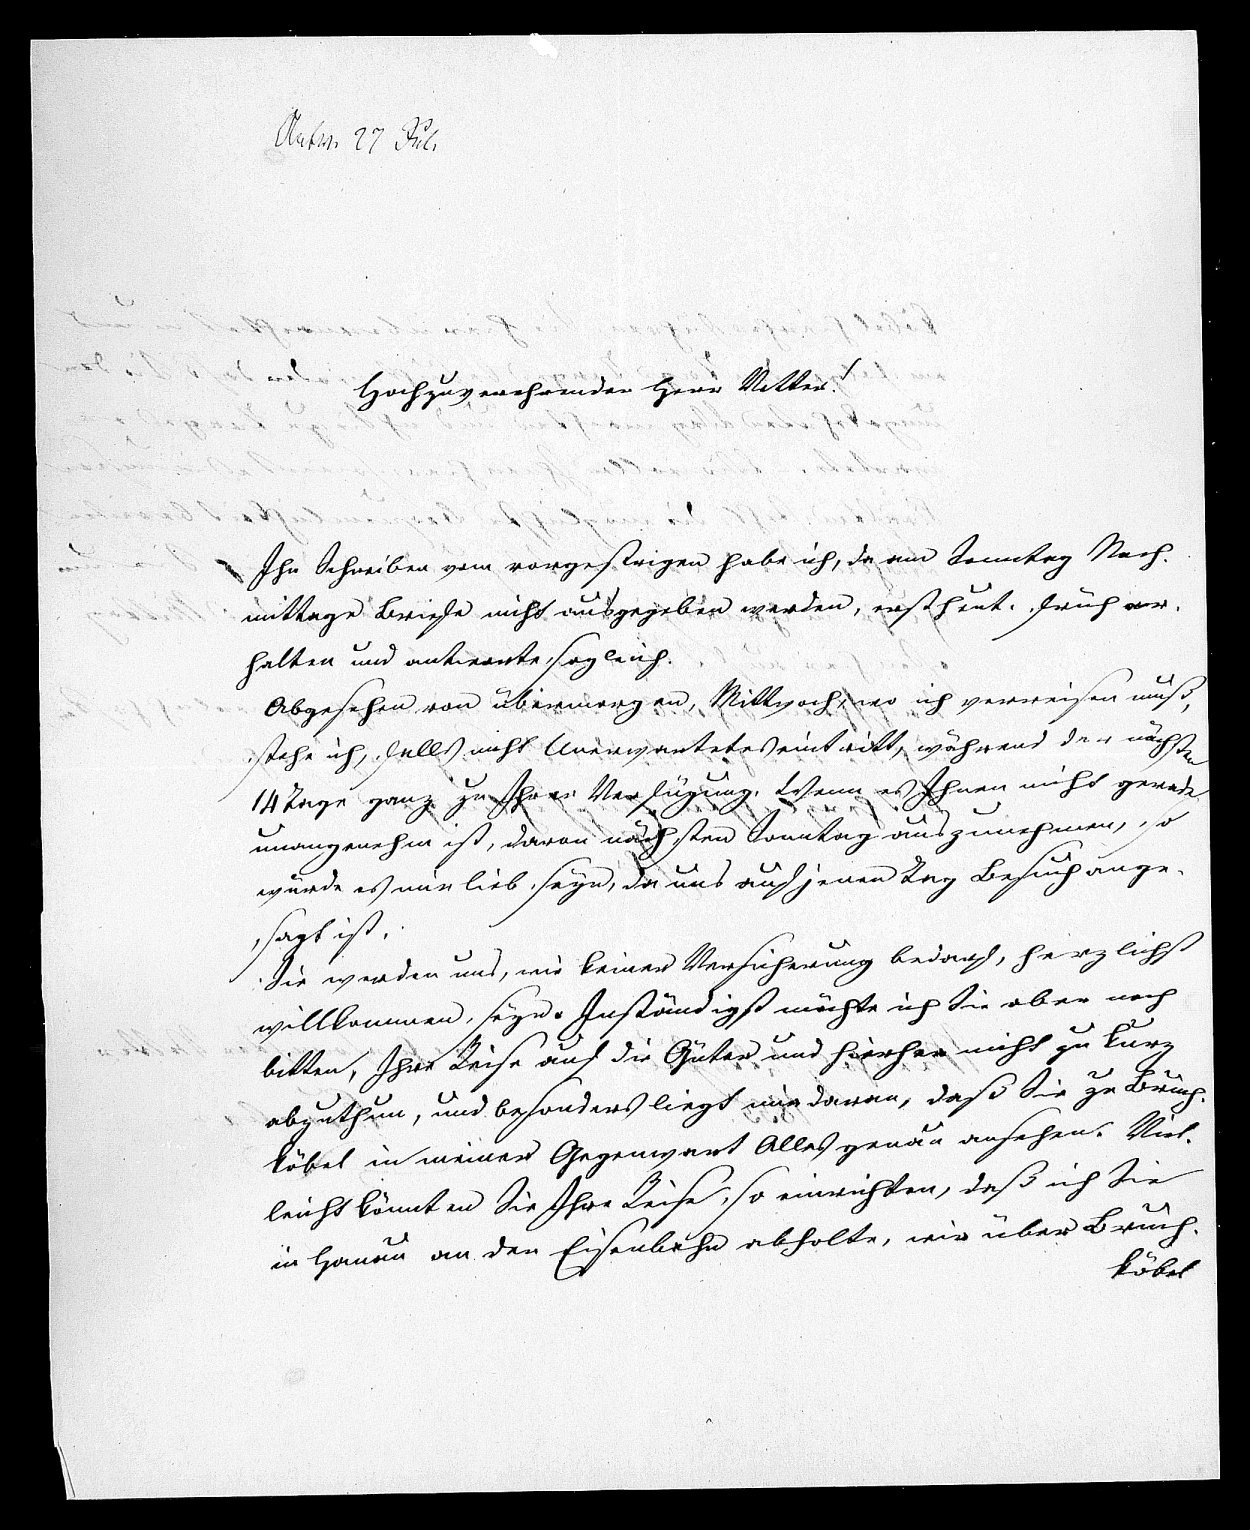 Antw. 27 Jul.
Hochzuverehrender Herr Vetter!
Ihr Schreiben vom vorgestrigen habe ich, da am Sonntag Nach-
mittage Briefe nicht ausgegeben werden, erst heut. früh er-
halten und antworte sogleich.
Abgesehen von übermorgen, Mittwoch, wo ich verreisen muß,
stehe ich, falls nicht Unerwartetes eintritt, während der nächsten
14 Tage ganz zu Ihrer Verfügung. Wenn es Ihnen nicht gerade
unangenehm ist, davon nächsten Sonntag auszunehmen, so
würde es mir lieb seyn, da uns auf jenen Tag Besuch ange-
sagt ist.
Sie werden uns, wie keiner Versicherung bedarf, herzlichst
willkommen seyn. Inständigst möchte ich Sie aber noch
bitten, Ihre Reise auf die Güter und hierher nicht zu kurz
abzuthun, und besonders liegt mir daran, daß Sie zu Bruch-
köbel in meiner Gegenwart Alles genau ansehen. Viel-
leicht könnten Sie Ihre Reise so einrichten, daß ich Sie
in Hanau an der Eisenbahn abholte, wir über Bruch-
köbel